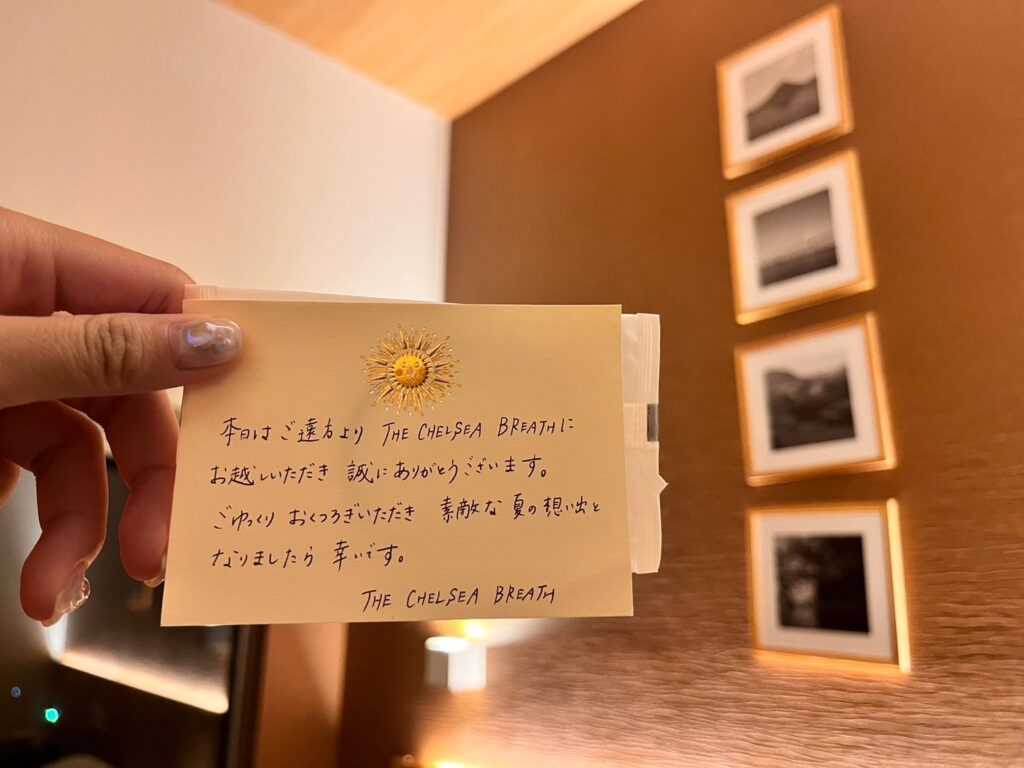 本日は ご遠方より THE CHELSEA BREATHに
お越しいただき 誠にありがとうございます。
ごゆっくり おくつろぎいただき 素敵な夏の想い出と
なりましたら 幸いです。
THE CHELSEA BREATH